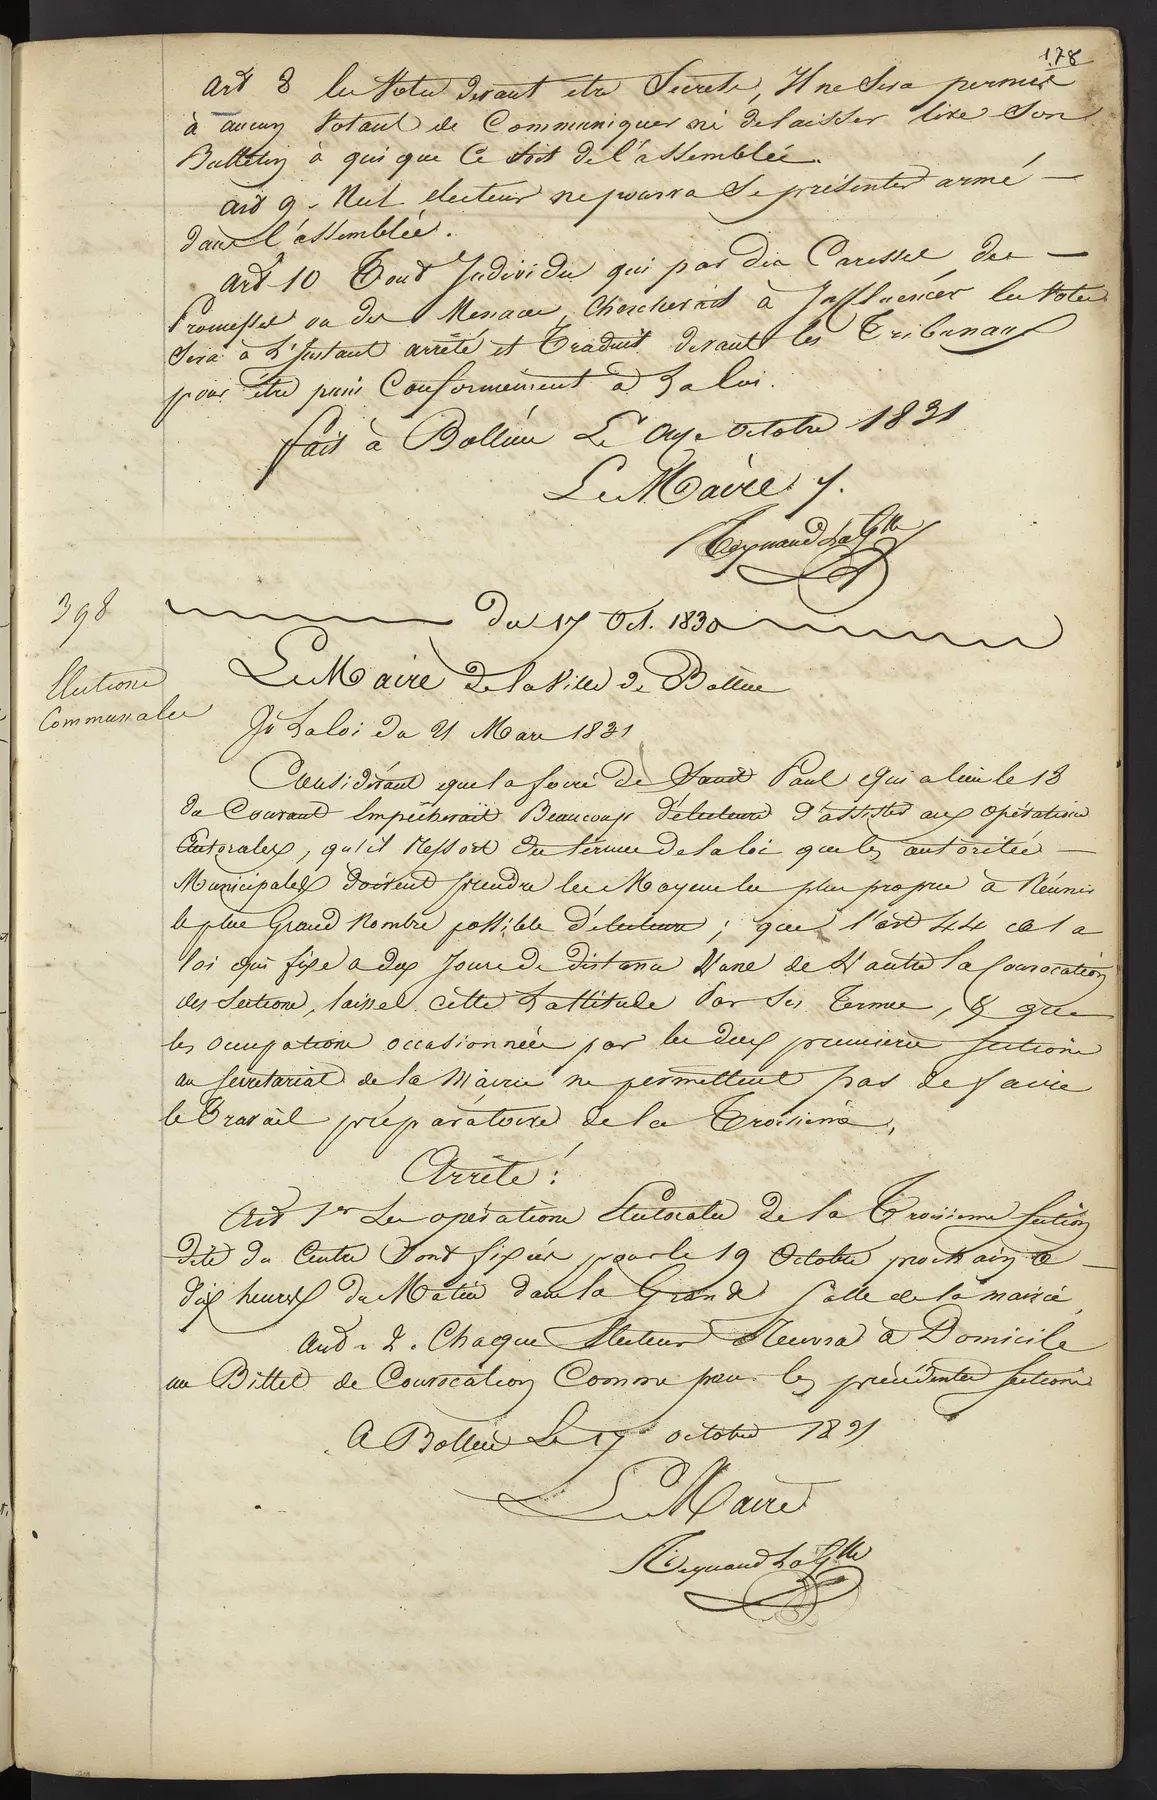 178
Art 8 les Votes devant etre Secrets, Il ne Sera permis
à aucun Votant de Communiquer ni de laisser lire Son
Bulletin à qui que Ce soit de l'assemblée.
art 9. Nul electeur ne pourra Se présenter armé —
dans l'assemblée.
art 10 Tout Individu qui par des Caresses des —
Promesses ou des Menaces, Chercherait à Influencer les Votes
Sera à L'Instant arrêté et Traduit devant les Tribunaux
pour être puni Conformément à La loi.
fait à Bollène Le Onze Octobre 1831
Le Maire
Reynaud La Gtte
398
Du 17 Oct. 1830
Elections
Communales
Le Maire de la Ville de Bollène
Vû La loi du 21 Mars 1831
Considérant que la foire de Saint Paul Qui a lieu le 18
du Courant Empêcherait Beaucoup d'électeurs d'assister aux Opérations
Electorales, qu'il Ressort des termes de la loi que les autorités —
Municipales doivent prendre les Moyens les plus propres à Réunir
le plus Grand Nombre possible d'électeurs ; que l'art 44 de la
loi qui fixe a deux Jours de distance L'une de L'autre la Convocation
des Sections, laisse cette Lattitude Par Ses Termes, & que
les Occupations occasionnées par les deux premières Sections
au Secretariat de la Mairie ne permettent pas de faire
le Travail préparatoire de la Troisième,
Arrête !
Art 1er Les opérations Electorales de la Troisieme Section
dite du Centre Sont fixées pour le 19 Octobre prochain à —
dix heures du Matin dans la Grande Salle de la mairie,
Art. 2. Chaque Electeur Recevra à Domicile
un Billet de Convocation Comme pour les précédentes Sections
A Bollène Le 17 octobre 1831
Le Maire
Reynaud La Gtte